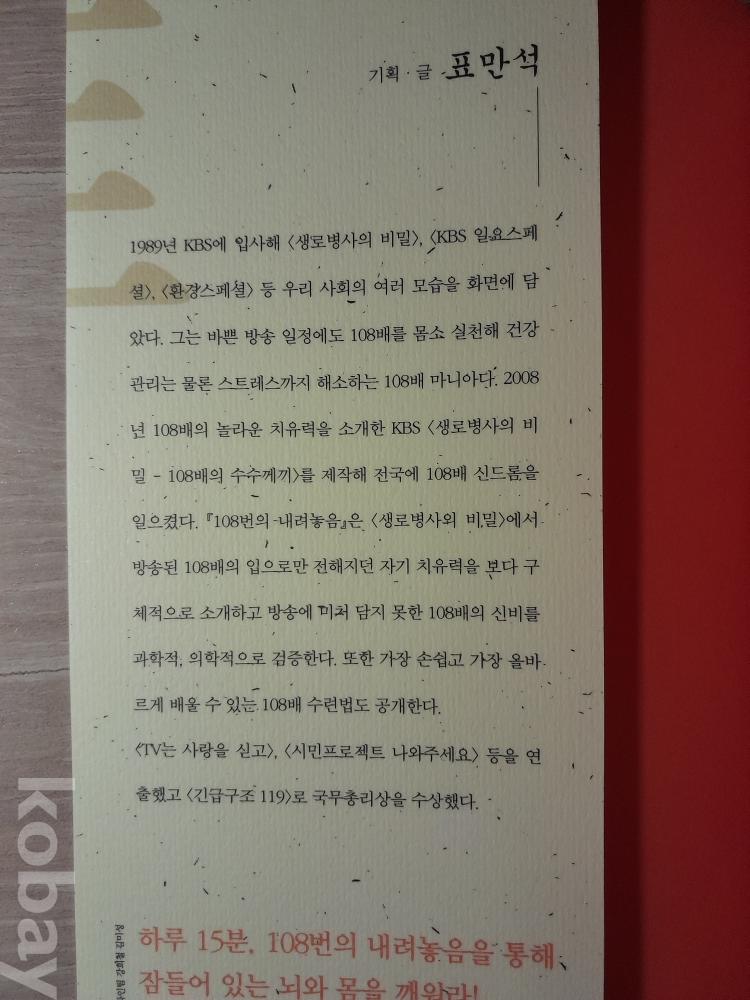 기획·글 표만석
1989년 KBS에 입사해 〈생로병사의 비밀〉, 〈KBS 일요스페
셜〉, 〈환경스페셜〉 등 우리 사회의 여러 모습을 화면에 담
았다. 그는 바쁜 방송 일정에도 108배를 몸소 실천해 건강
관리는 물론 스트레스까지 해소하는 108배 마니아다. 2008
년 108배의 놀라운 치유력을 소개한 KBS 〈생로병사의 비
밀 - 108배의 수수께끼〉를 제작해 전국에 108배 신드롬을
일으켰다. 『108번의 내려놓음』은 〈생로병사의 비밀〉에서
방송된 108배의 입으로만 전해지던 자기 치유력을 보다 구
체적으로 소개하고 방송에 미처 담지 못한 108배의 신비를
과학적, 의학적으로 검증한다. 또한 가장 손쉽고 가장 올바
르게 배울 수 있는 108배 수련법도 공개한다.
〈TV는 사랑을 싣고〉, 〈시민프로젝트 나와주세요〉 등을 연
출했고 〈긴급구조 119〉로 국무총리상을 수상했다.
하루 15분, 108번의 내려놓음을 통해
잠들어 있는 뇌와 몸을 깨워라!
kobay